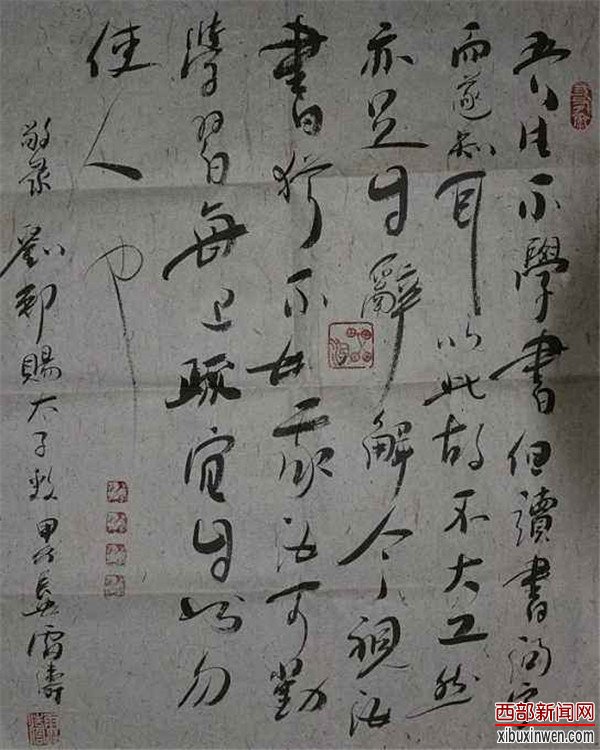 吾生不學書但讀書問字
而遂知耳以此故不大工然
亦足自辭解今視汝
書猶不如吾汝可勤
學習每上疏宜自书勿
使人也
敬录劉邦賜太子敕
西部新闻网
xibuxinwen.com